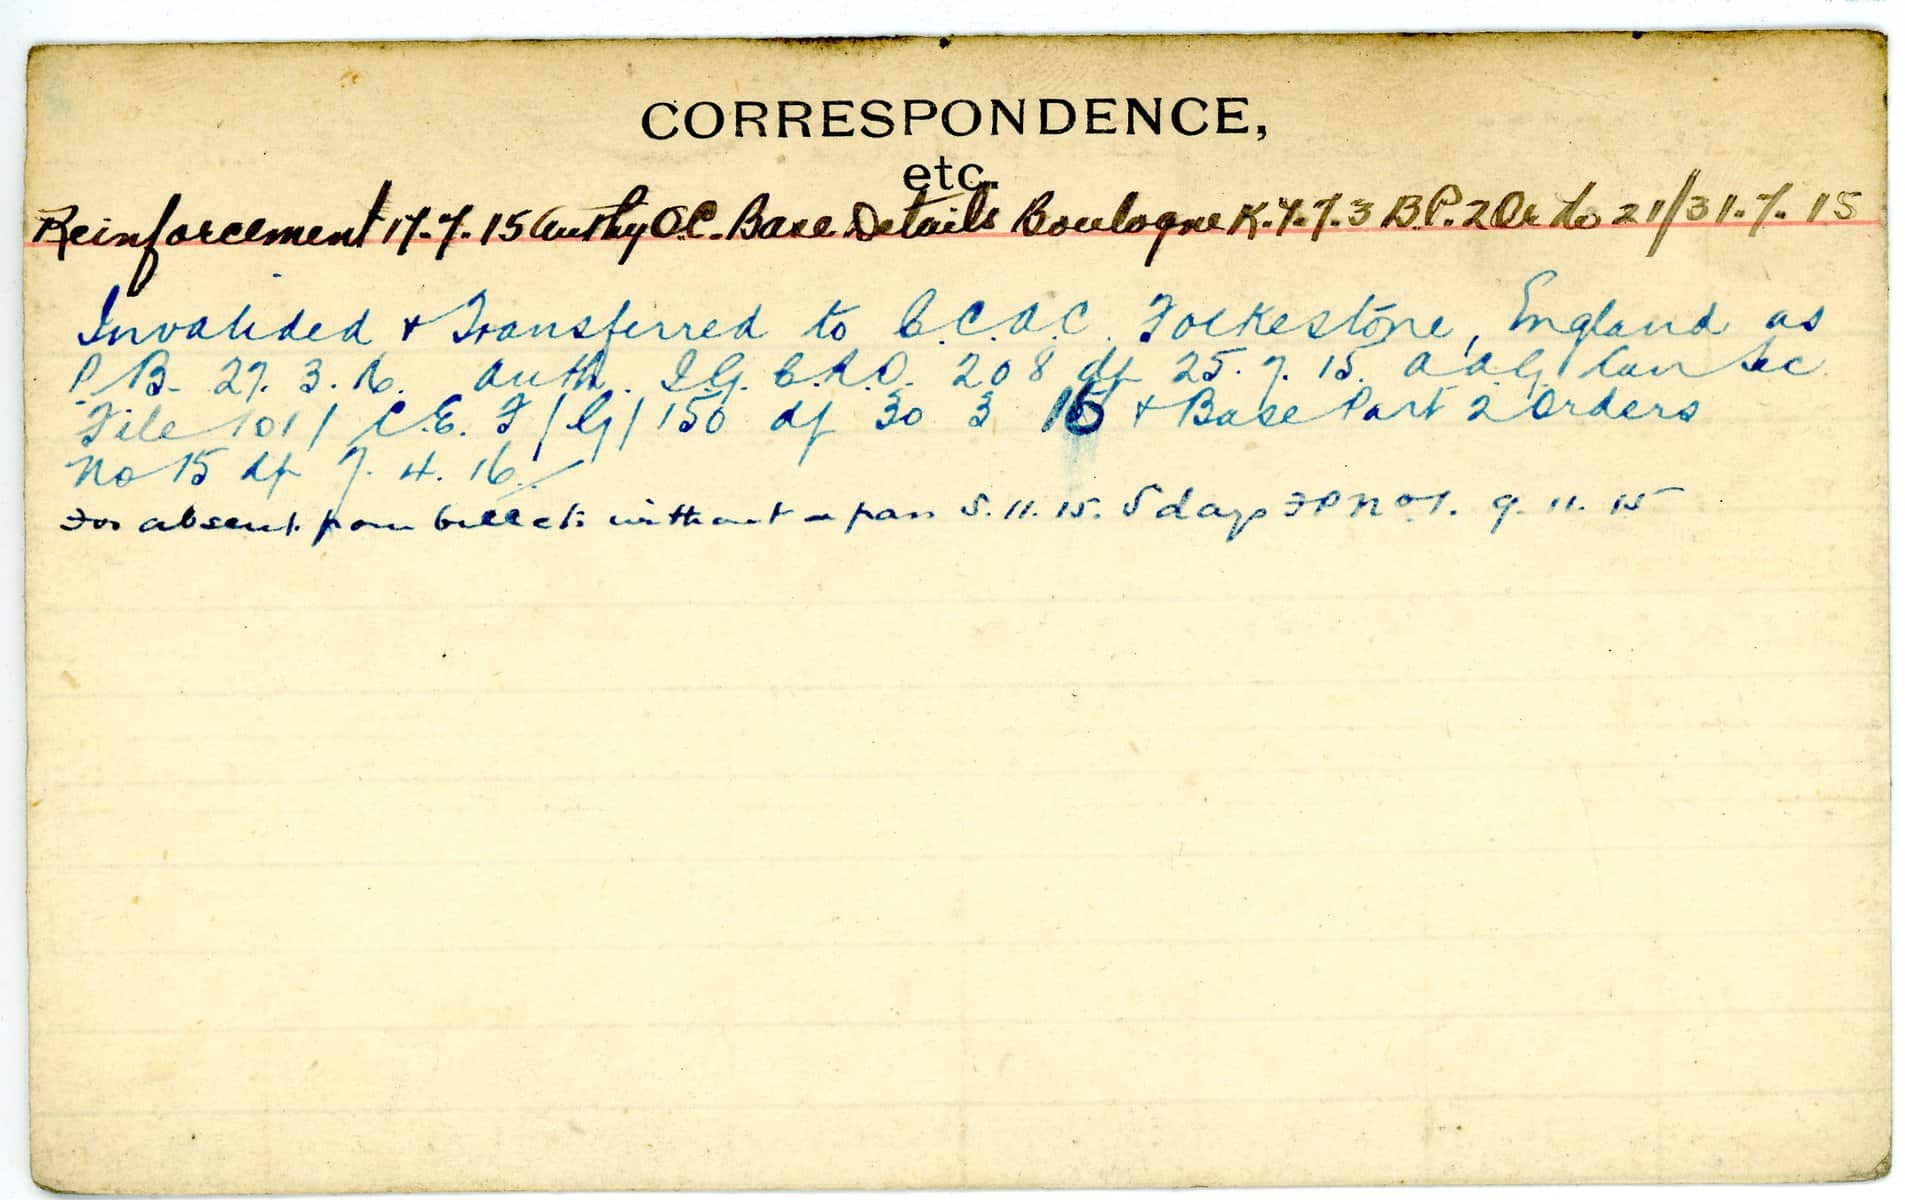 CORRESPONDENCE,
etc.
Reinforcement 17.7.15 Authy O.C. Base Details Boulogne K.7.7.3 B.P. 2 Or to 21/31.7.15
Invalided & Transferred to C.C.A.C. Folkestone, England as
P.B. 27.3.16. Auth. I.G.C.R.O. 208 df 25.7.15. A A G Can Sec
File 101/ C.E.F/G/150 df 30 3 16 & Base Part 2 Orders
No 15 df 7.4.16.
For absent from billets without a pass 5.11.15. 5 days FP No 1. 9.11.15